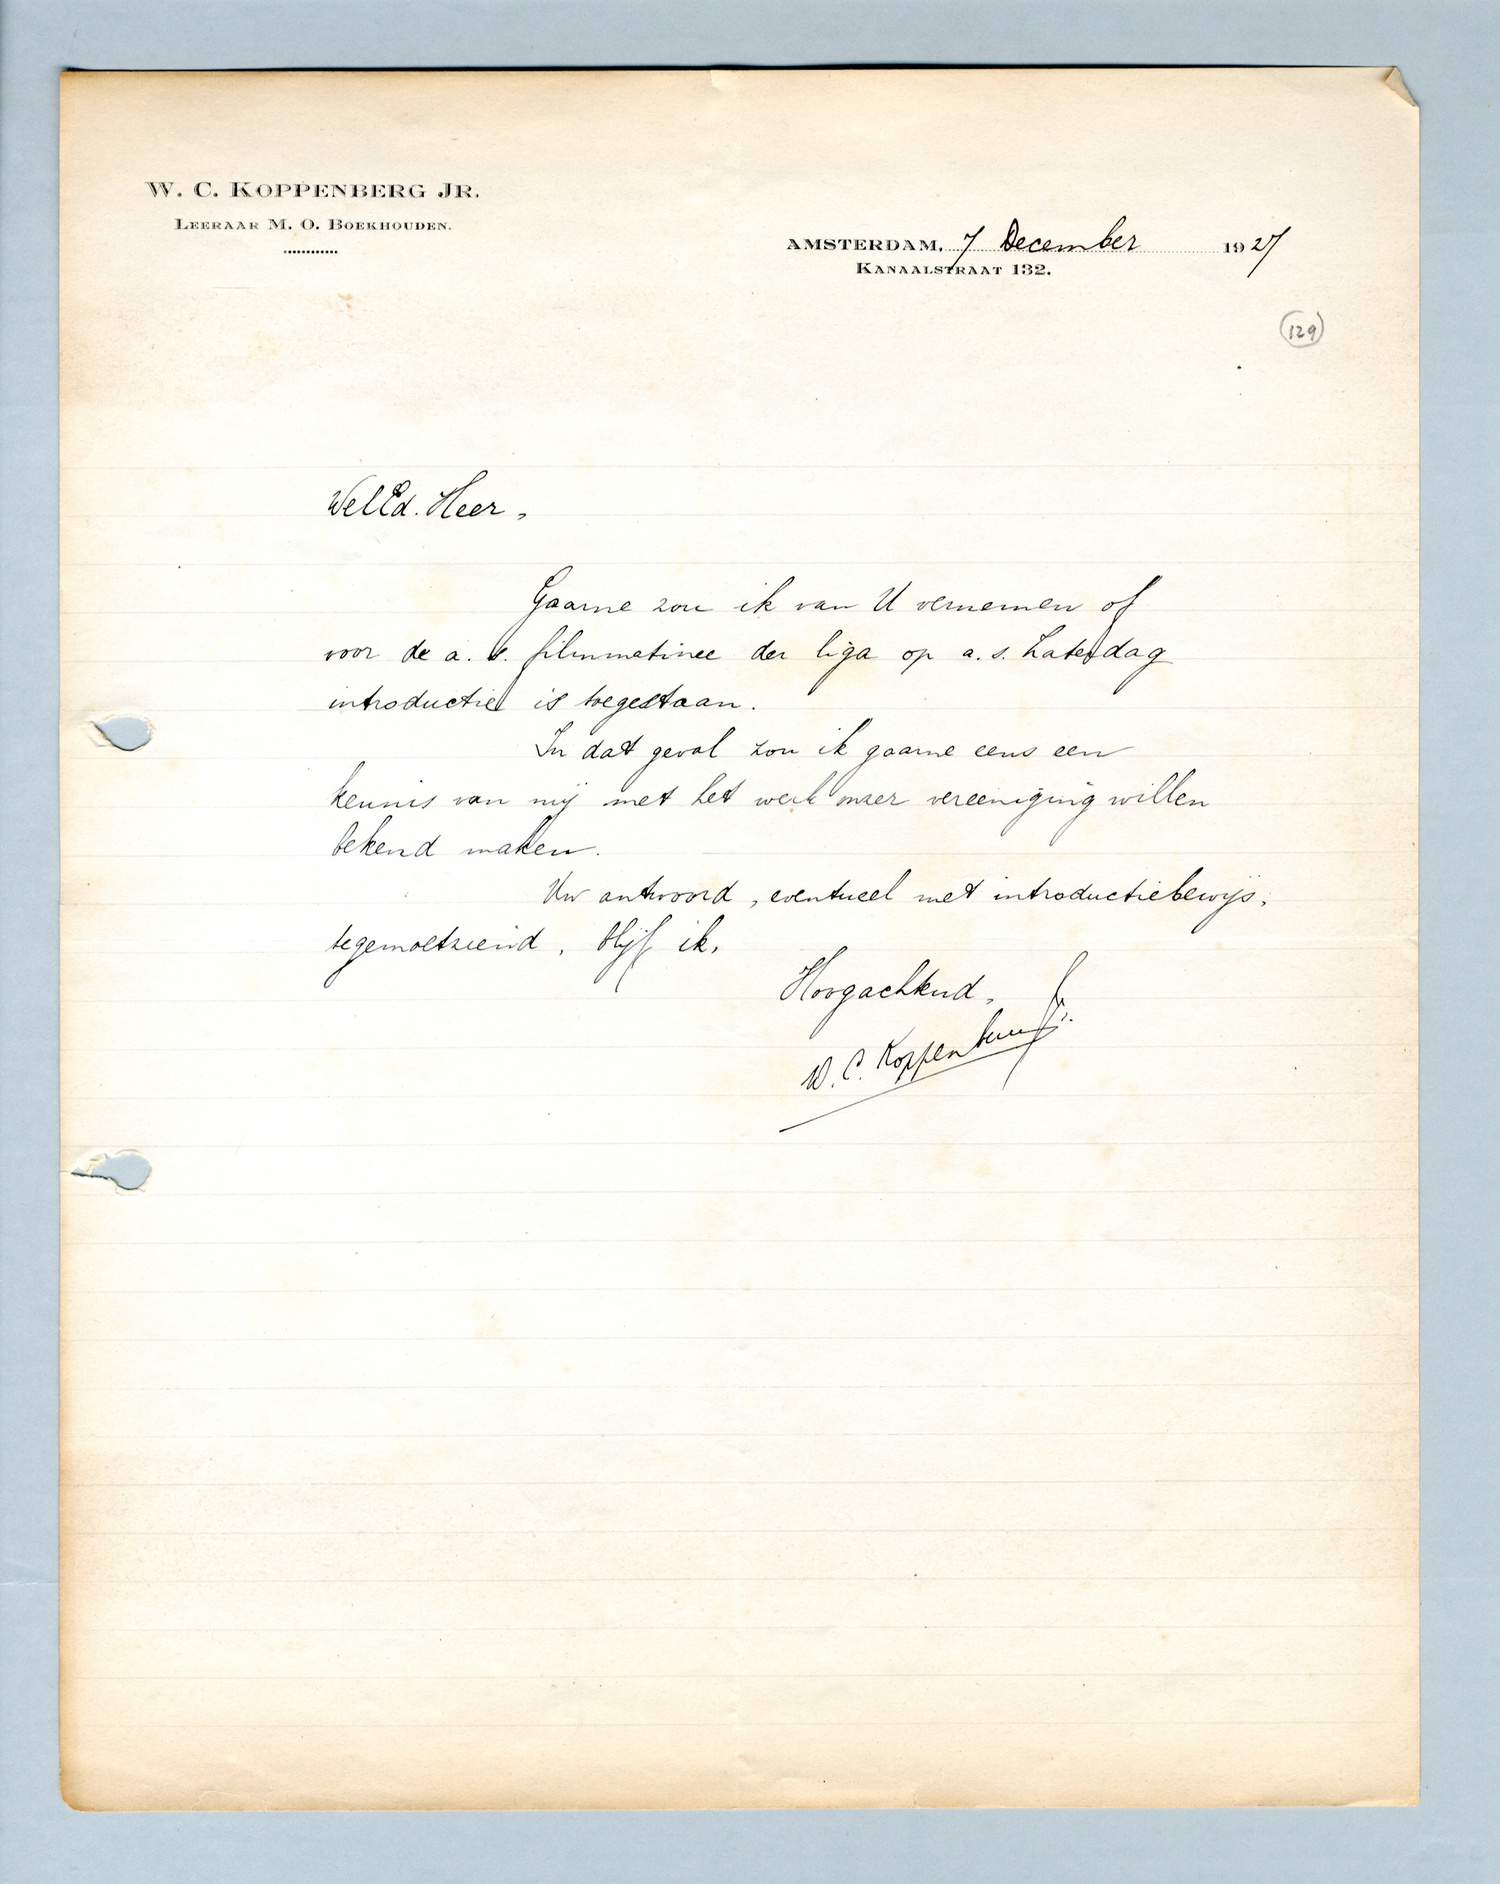 W. C. KOPPENBERG JR.
LEERAAR M. O. BOEKHOUDEN.
AMSTERDAM, 7 December 1927
KANAALSTRAAT 132.
129
WelEd. Heer,
Gaarne zou ik van U vernemen of
voor de a. s. filmmatinee der liga op a. s. Zaterdag
introductie is toegestaan.
In dat geval zou ik gaarne eens een
kennis van mij met het werk onzer vereeniging willen
bekend maken.
Uw antwoord, eventueel met introductiebewijs,
tegemoetziend, blijf ik,
Hoogachtend,
W. C. Koppenberg Jr.